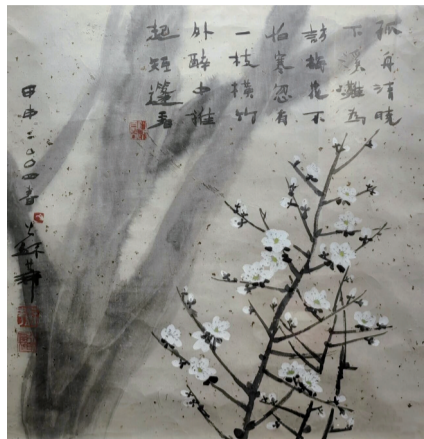 孤舟清曉
下溪灘為
訪梅花不
怕寒忽有
一枝橫竹
外醉中推
起短篷看
甲申二〇〇四春